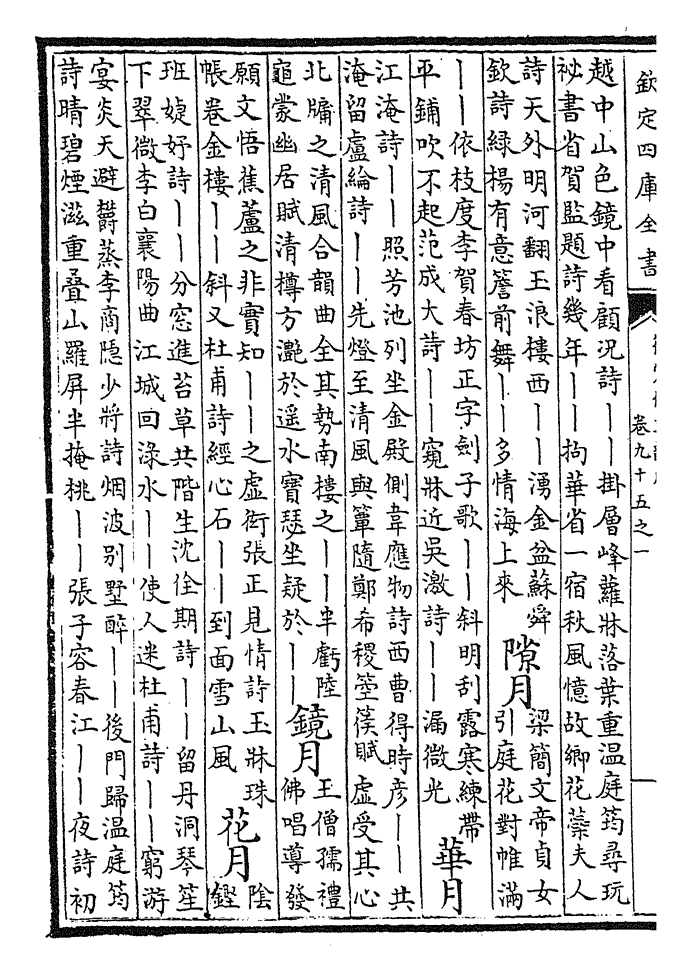 欽定四庫全書
卷九十五之一
越中山色鏡中看顧況詩｜｜掛層峰蘿牀落葉重温庭筠尋玩
祕書省賀監題詩幾年｜｜拘華省一宿秋風憶故鄉花蘂夫人
詩天外明河翻玉浪樓西｜｜湧金盆蘇舜
欽詩緑楊有意簷前舞｜｜多情海上來
隙月
梁簡文帝貞女
引庭花對帷滿
｜｜依枝度李賀春坊正字劍子歌｜｜斜明刮露寒練帶
平鋪吹不起范成大詩｜｜窺牀近吳激詩｜｜漏微光
華月
江淹詩｜｜照芳池列坐金殿側韋應物詩西曹得時彦｜｜共
淹留盧綸詩｜｜先燈至清風與簟隨鄭希稷箜篌賦虚受其心
北牗之清風合韻曲全其勢南樓之｜｜半虧陸
龜蒙幽居賦清樽方灧於遥水寶瑟坐疑於｜｜
鏡月
王僧孺禮
佛唱導發
願文悟蕉蘆之非實知｜｜之虚衒張正見情詩玉牀珠
帳卷金樓｜｜斜又杜甫詩經心石｜｜到面雪山風
花月
陰
鏗
班婕妤詩｜｜分窓進苔草共階生沈佺期詩｜｜留丹洞琴笙
下翠微李白襄陽曲江城回渌水｜｜使人迷杜甫詩｜｜窮游
宴炎天避鬱蒸李商隐少將詩烟波别墅醉｜｜後門歸温庭筠
詩晴碧煙滋重叠山羅屏半掩桃｜｜張子容春江｜｜夜詩初